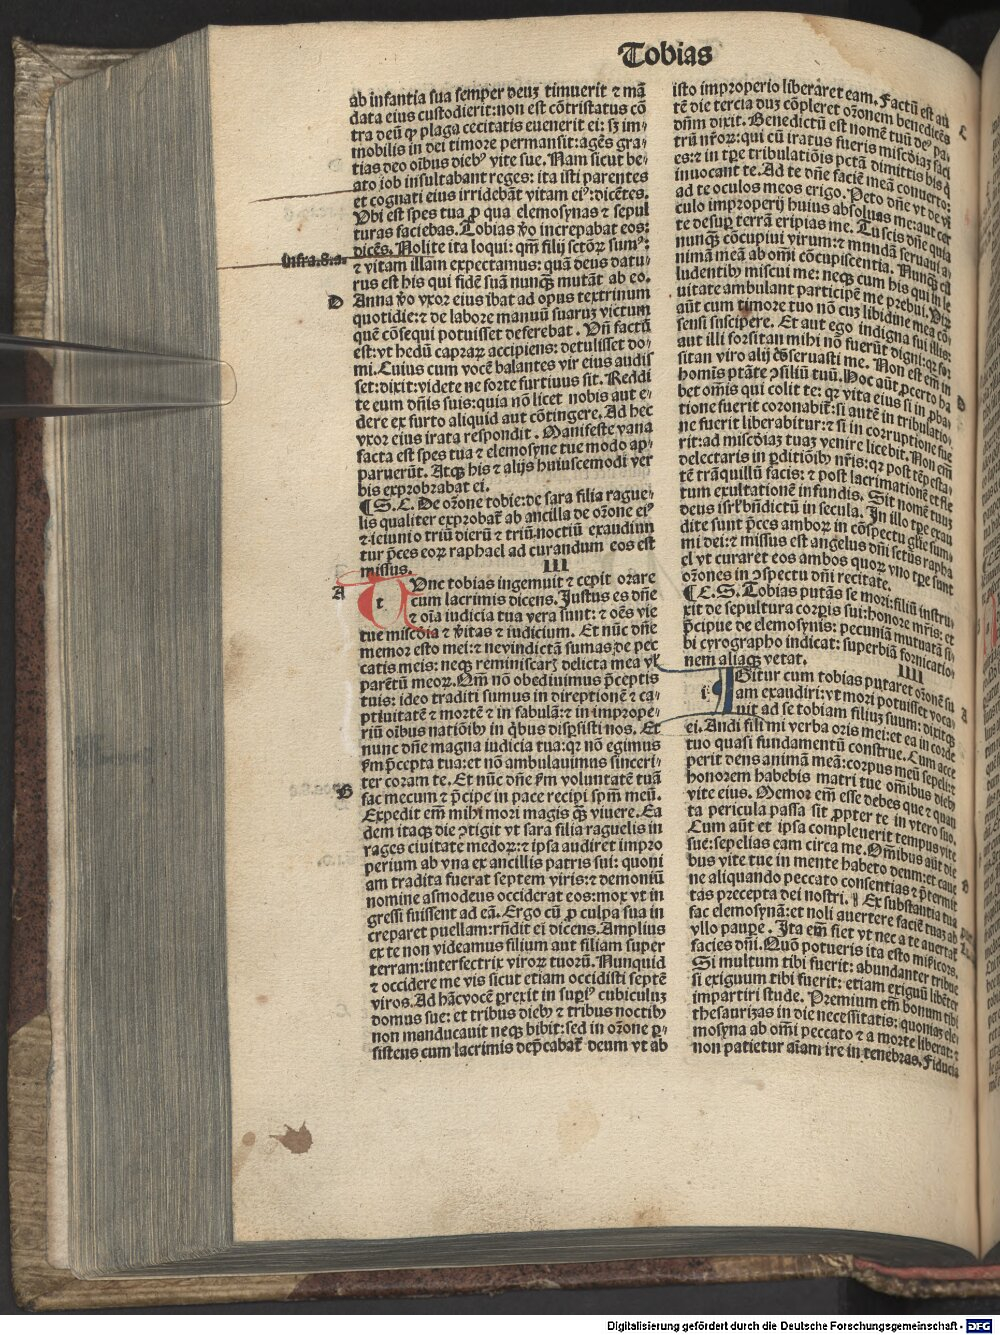 Tobias
ab infantia sua semper deuz timuerit ⁊ mā
data eius custodierit: non est cōtristatus cō
tra deū ꝙ plaga cecitatis euenerit ei: sꝫ im-
mobilis in dei timore permansit: agēs gra-
tias deo oībus diebꝰ vite sue. Nam sicut be-
ato iob insultabant reges: ita isti parentes
et cognati eius irridebāt vitam eiꝰ: dicētes.
Vbi est spes tua ꝓ qua elemosynas ⁊ sepul
turas faciebas. Tobias ꝟo increpabat eos:
dicēs. Nolite ita loqui: qm̄ filij sctōꝝ sumꝰ:
Infra.8.a.
⁊ vitam illam expectamus: quā deus datu-
rus est his qui fidē suā nunqꝫ mutāt ab eo.
D
Anna ꝟo vxor eius ibat ad opus textrinum
quotidie: ⁊ de labore manuū suaruꝫ victum
quē cōsequi potuisset deferebat. Vn̄ factū
est: vt hedū capraꝝ accipiens: detulisset do-
mi. Cuius cum vocē balantes vir eius audis
set: dixit: videte ne forte furtiuus sit. Reddi
te eum dn̄is suis: quia nō licet nobis aut e-
dere ex furto aliquid aut cōtingere. Ad hec
vxor eius irata respondit. Manifeste vana
facta est spes tua ⁊ elemosyne tue modo ap-
paruerūt. Atqꝫ his ⁊ alijs huiuscemodi ver
bis exprobrabat ei.
¶ S. C. De ozōne tobie: de sara filia rague-
lis qualiter exprobat̄ ab ancilla de ozōne eiꝰ
⁊ ieiunio triū dierū ⁊ triū noctiū exaudiun
tur p̄ces eoꝝ raphael ad curandum eos est
missus. III
A
TVnc tobias ingemuit ⁊ cepit orare
t
cum lacrimis dicens. Justus es dn̄e
⁊ oīa iudicia tua vera sunt: ⁊ oēs vie
tue miscdīa ⁊ ꝟitas ⁊ iudicium. Et nūc dn̄e
memor esto mei: ⁊ ne vindictā sumas de pec
catis meis: neqꝫ reminiscarꝭ delicta mea vl̓
parētū meoꝝ. Qm̄ nō obediuimus p̄ceptis
tuis: ideo traditi sumus in direptionē ⁊ ca-
ptiuitatē ⁊ mortē ⁊ in fabulā: ⁊ in imprope-
riū oībus natiōibꝰ in qͥbus disꝑsisti nos. Et
nunc dn̄e magna iudicia tua: qꝛ nō egimus
ẜm p̄cepta tua: et nō ambulauimus sinceri-
ter coram te. Et nūc dn̄e ẜm voluntatē tuā
B
fac mecum ⁊ p̄cipe in pace recipi spm̄ meū.
Expedit em̄ mihi mori magis qꝫ viuere. Ea
dem itaqꝫ die ꝯtigit vt sara filia raguelis in
rages ciuitate medoꝝ: ⁊ ipsa audiret impro
perium ab vna ex ancillis patris sui: quoni
am tradita fuerat septem viris: ⁊ demoniū
nomine asmodeus occiderat eos: mox vt in
gressi fuissent ad eā. Ergo cū ꝓ culpa sua in
creparet puellam: rn̄dit ei dicens. Amplius
ex te non videamus filium aut filiam super
terram: interfectrix viroꝝ tuorū. Nunquid
⁊ occidere me vis sicut etiam occidisti septē
viros. Ad hāc vocē ꝑrexit in suꝑiꝰ cubiculuꝫ
domus sue: et tribus diebꝰ ⁊ tribus noctibꝰ
non manducauit neqꝫ bibit: sed in ozōne ꝑ-
sistens cum lacrimis dep̄cabat̄ deum vt ab
isto improperio liberaret eam. Factū est aū
C
tē die tercia duꝫ cōpleret ozōnem benedicēs
dn̄m dixit. Benedictū est nomē tuū deꝰ pa-
trū nr̄oꝝ: qui cū iratus fueris miscdīaꝫ faci
es: ⁊ in tꝑe tribulatiōis pctā dimittis his ꝗ
inuocant te. Ad te dn̄e faciē meā conuerto:
ad te oculos meos erigo. Peto dn̄e vt de vi
culo improperij huius absoluas me: aut cer
te desuꝑ terrā eripias me. Tu scis dn̄e quia
nunqꝫ cōcupiui virum: ⁊ mundā seruaui a-
nimā meā ab omī cōcupiscentia. Nunqꝫ cū
ludentibꝰ miscui me: neqꝫ cum his qui in le
uitate ambulant participē me prebui. Virꝫ
aūt cum timore tuo nō cuꝫ libidine mea cō-
sensi suscipere. Et aut ego indigna fui illis:
aut illi forsitan mihi nō fuerūt digni: qꝛ for
sitan viro alij ꝯseruasti me. Non est em̄ in
homīs ptāte ꝯsiliū tuū. Hoc aūt ꝓcerto ha
D
bet om̄is qui colit te: qꝛ vita eius si in ꝓba-
tione fuerit coronabit̄: si autē in tribulatio-
ne fuerit liberabitur: ⁊ si in corruptione fue
rit: ad miscdīaꝫ tuaꝫ venire licebit. Non em̄
delectaris in ꝑditiōibꝰ nr̄is: qꝛ post tēpesta-
tē trāquillū facis: ⁊ post lacrimationē et fle
tum exultationē infundis. Sit nomē tuuꝫ
deus isrl̓ bn̄dictū in secula. In illo tꝑe exau
dite sunt p̄ces amboꝝ in cōspectu gl̄ie sum-
mi dei: ⁊ missus est angelus dn̄i sctūs rapha
el vt curaret eos ambos quoꝝ vno tꝑe sunt
ozōnes in ꝯspectu dn̄i recitate.
¶ C. S. Tobias putās se mori: filiū instru-
xit de sepultura corꝑis sui: honore mr̄is: et
p̄cipue de elemosynis: pecuniā mutuatā si-
bi cyrographo indicat: superbiā fornicatio-
nem aliaqꝫ vetat. IIII
IGitur cum tobias putaret ozōnē su
i
am exaudiri: vt mori potuisset voca-
A
uit ad se tobiam filiuꝫ suum: dixitqꝫ
ei. Audi fili mi verba oris mei: et ea in corde
tuo quasi fundamentū construe. Cum acce
perit deus animā meā: corpus meū sepeli: ⁊
honorem habebis matri tue omībus diebꝰ
vite eius. Memor em̄ esse debes que ⁊ quan
ta pericula passa sit ꝓpter te in vtero suo.
Cum aūt et ipsa compleuerit tempus vite
sue: sepelias eam circa me. Omībus aūt die
bus vite tue in mente habeto deum: et caue
ne aliquando peccato consentias ⁊ p̄termit
B
tas precepta dei nostri. ¶ Ex substantia tua
fac elemosynā: et noli auertere faciē tuaꝫ ab
vllo pauꝑe. Ita em̄ fiet vt nec a te auertat̄
facies dn̄i. Quō potueris ita esto mīsicors.
Si multum tibi fuerit: abundanter tribue
si exiguum tibi fuerit: etiam exiguū libēter
impartiri stude. Premium em̄ bonum tibi
thesaurizas in die necessitatis: quoniaꝫ ele-
mosyna ab omī peccato ⁊ a morte liberat: ⁊
non patietur aīam ire in tenebras. Fiducia
Digitalisierung gefördert durch die Deutsche Forschungsgemeinschaft - DFG